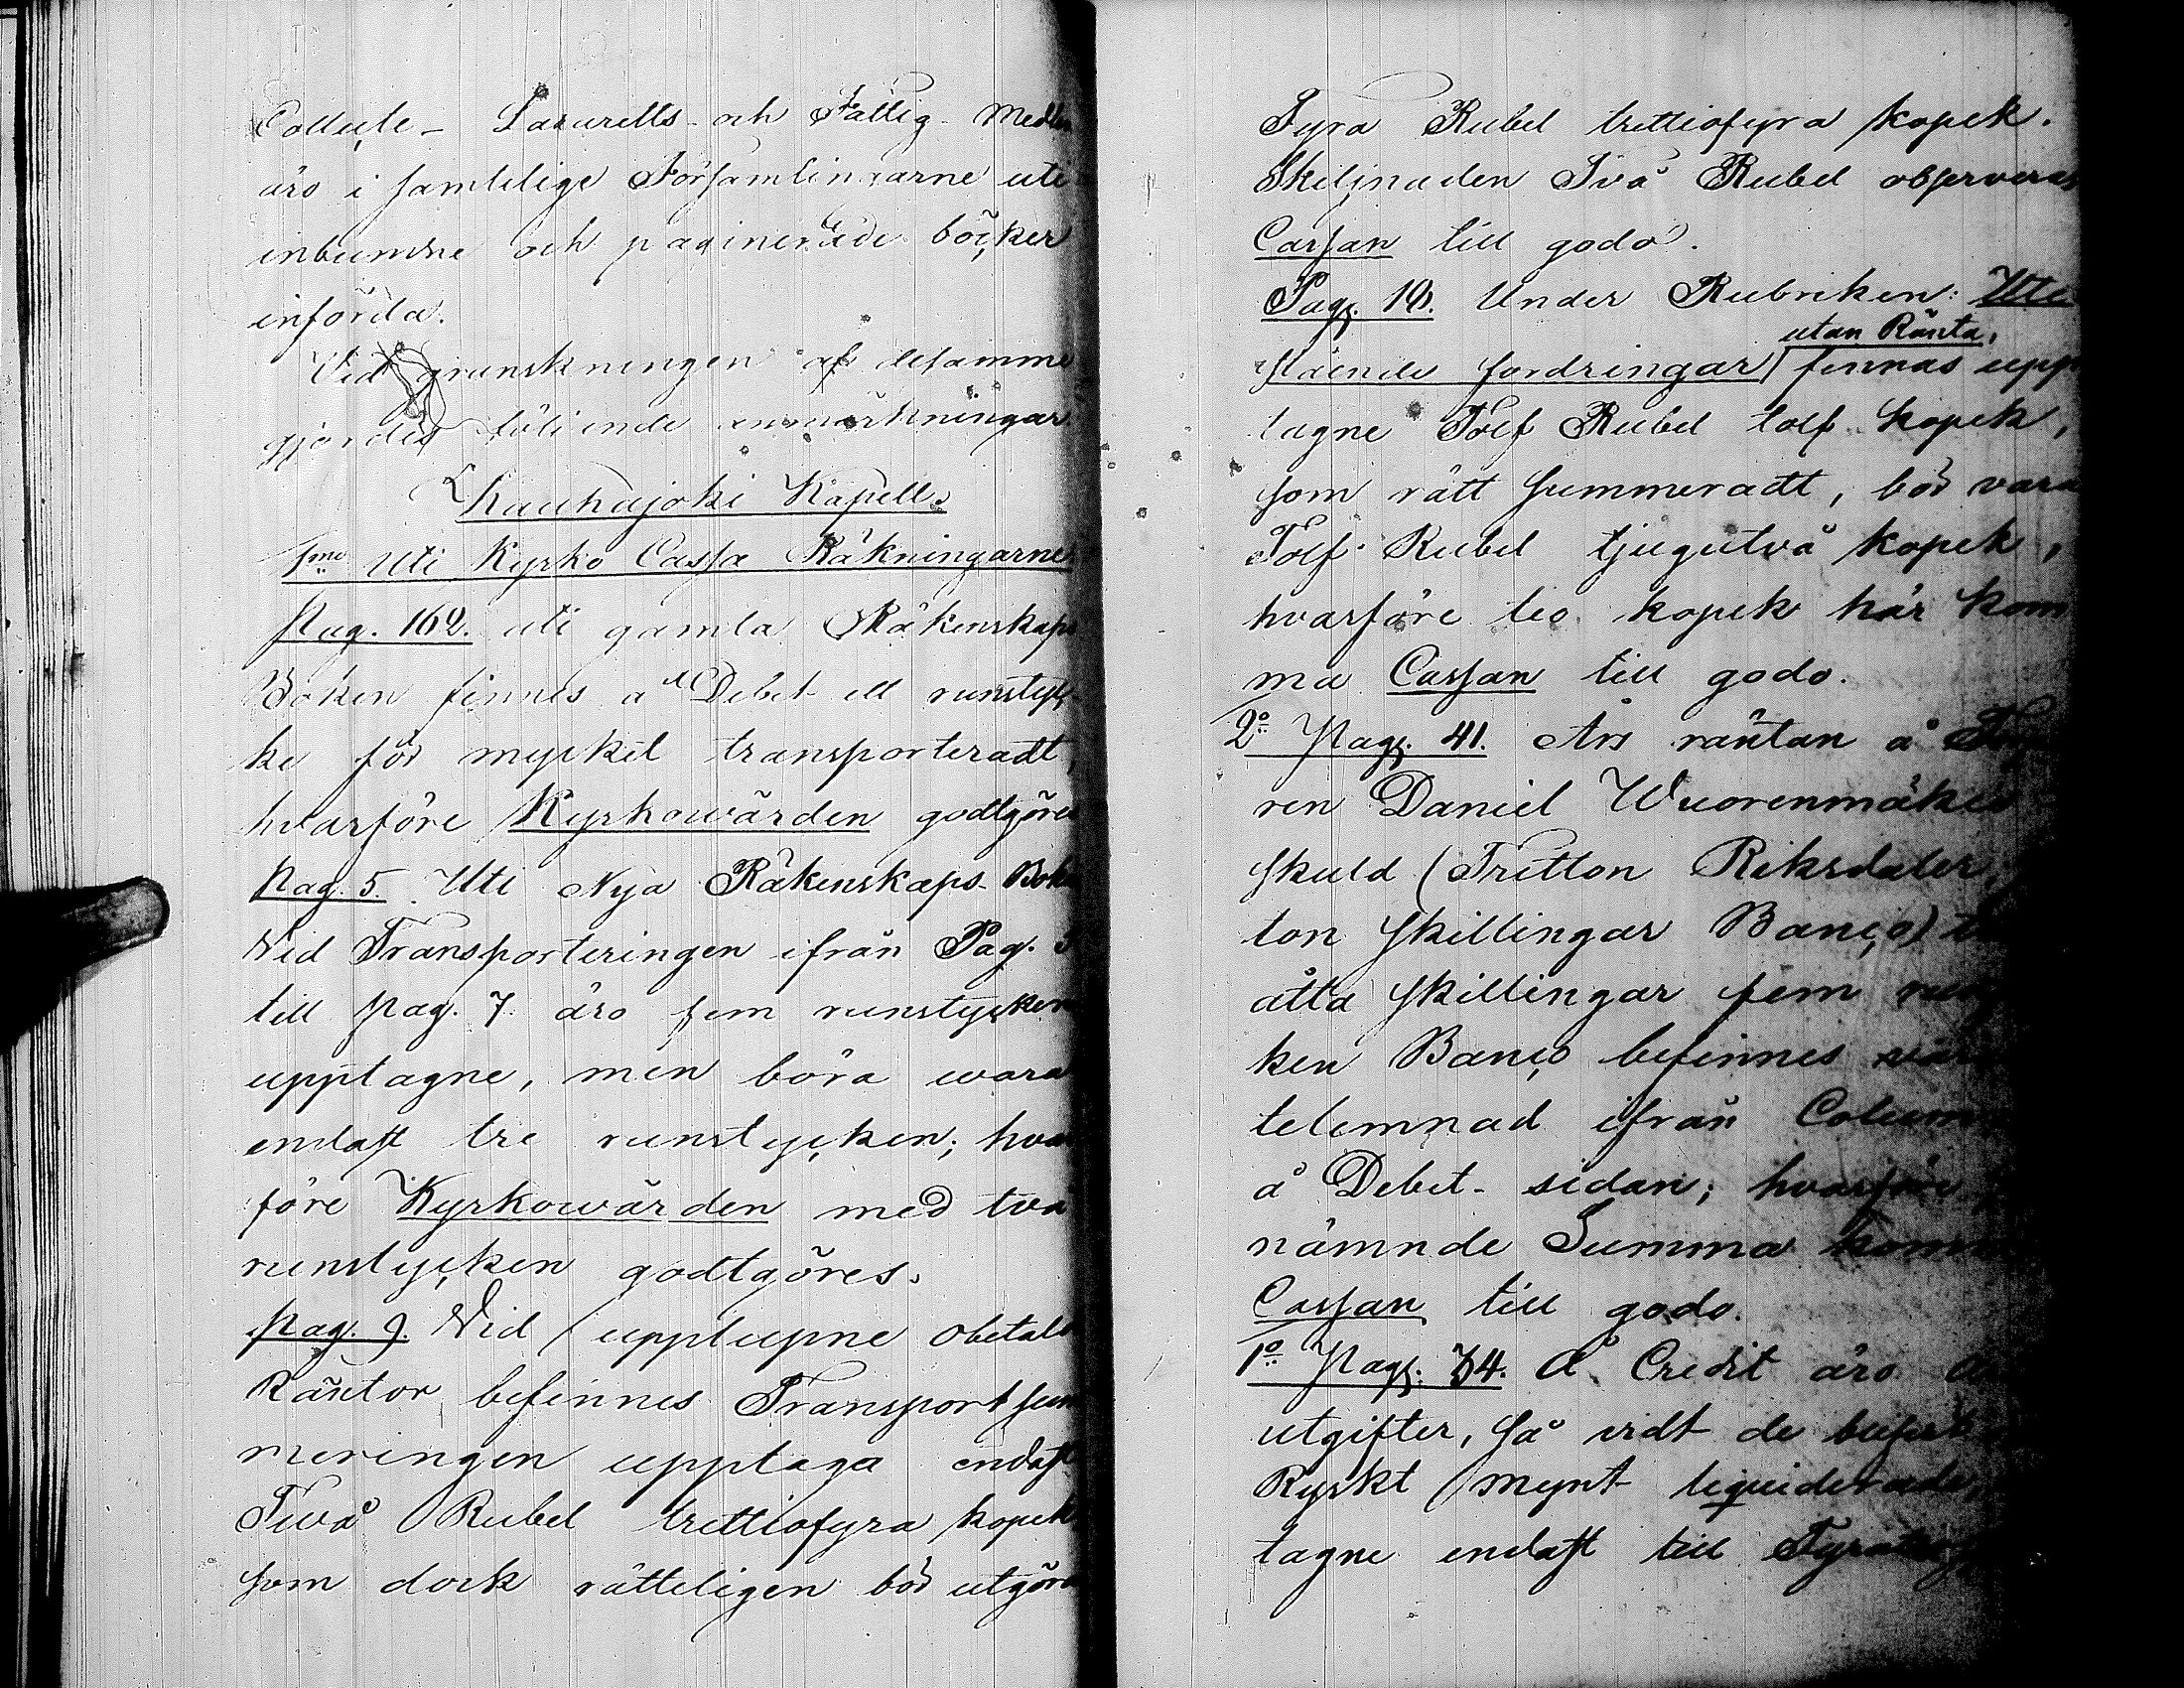 Collecte- Lazaretts- och Fattig- Medlen
äro i samtelige Församlingarne uti
inbundne och paginerade böcker
införda.
Vid granskningen af desamme
gjordes följende anmärkningar.
Kauhajoki Kapell.
1mo Uti Kyrko Cassa Räkningarne
Pag. 162. uti gamla Räkenskaps
Boken finnes å Debet ett runstyc-
ke för myket transporteradt,
hvarföre Kyrkowärden godtgöres
Pag. 5. Uti Nya Räkenskaps-Boken
Vid Transporteringen ifrån Pag. 5
till pag. 7. äro fem runstycken
upptagne, men böra wara
endast tre runstycken; hvar
före Kyrkowärden med två
runstycken godtgöres.
Pag. 9. Vid upplupne obetalte
Räntor befinnes Transportsum
meringen upptaga endast
Twå Rubel trettiofyra kopek
som dock rätteligen bör utgöra
Fyra Rubel trettiofyra kopek.
Skilnaden Två Rubel observeras
Cassan till godo.
Pag. 10. Under Rubriken: Ute
utan Ränta,
stående fordringar finnas upp
tagne Tolf Rubel tolf kopek,
som rätt summeradt, bör vara
Tolf Rubel tjugutvå kopek,
hvarföre tio kopek här kom
ma Cassan till godo.
2o Pag. 41. Års räntan å
ren Daniel Wuorenmäkis
skuld (Tretton Riksdaler,
ton skillingar Banco)
åtta skillingar fem run
ken Banco befinnes
telemnad ifrån Colum
å Debet- sidan; hvarföre
nämnde Summa kom
Cassan till godo.
1o Pag. 34. Å Credit äro
utgifter, så vidt de
Ryskt mynt liquiderade,
tagne endast till Fyratio